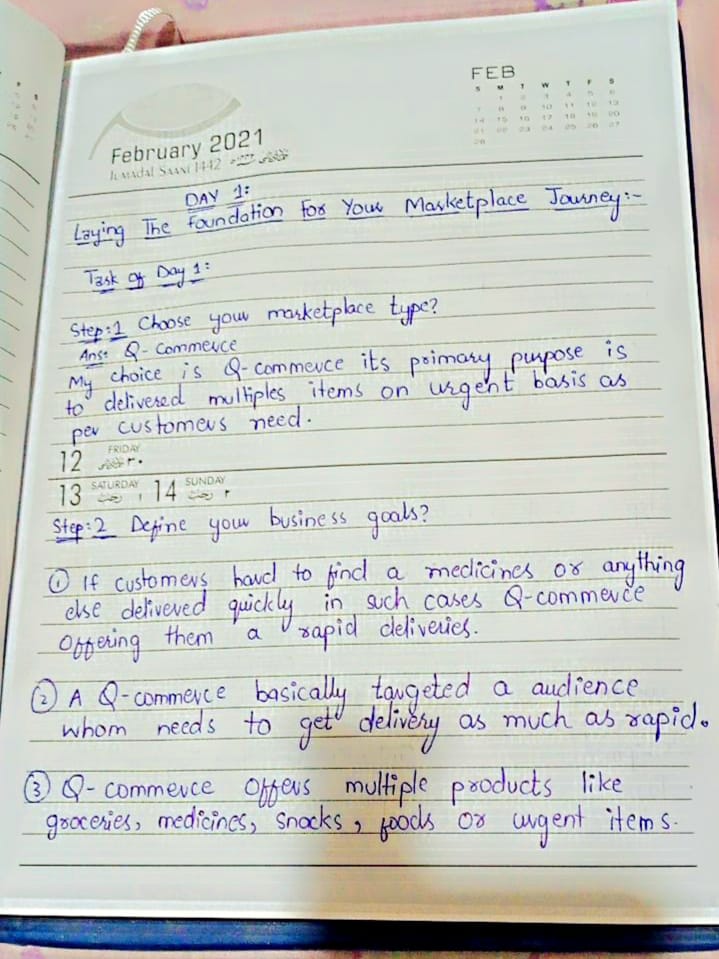 FEB
S M T W T F S
1 2 3 4 5 6
7 8 9 10 11 12 13
14 15 16 17 18 19 20
21 22 23 24 25 26 27
28
February 2021
JUMADAL SAANI 1442
DAY 1:
Laying The foundation For Your Marketplace Journey:-
Task of Day 1:
Step:1 Choose your marketplace type?
Ans: Q-Commerce
My choice is Q-commerce its primary purpose is
to delivered multiples items on urgent basis as
per customers need.
12 FRIDAY
13 SATURDAY 14 SUNDAY
Step:2 Define your business goals?
① If customers hard to find a medicines or anything
else delivered quickly in such cases Q-commerce
Offering them a rapid deliveries.
② A Q-commerce basically targeted a audience
whom needs to get delivery as much as rapid.
③ Q-commerce Offers multiple products like
groceries, medicines, Snacks, foods or urgent items.